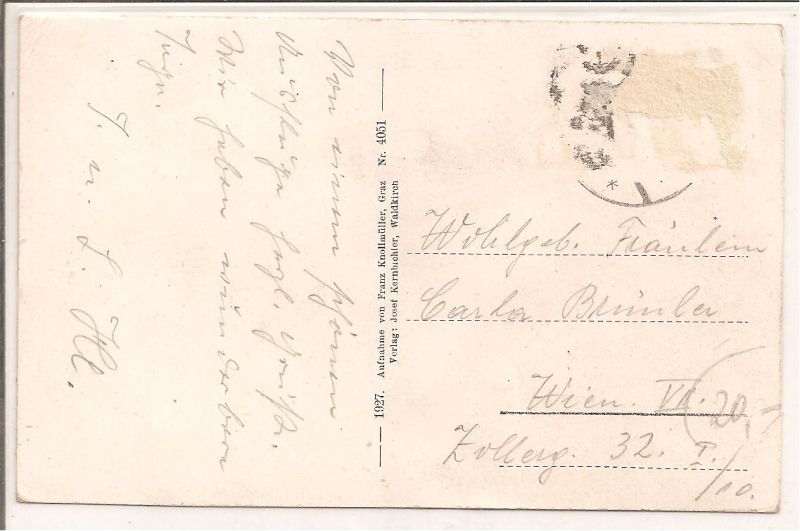 Von einem schönen
Ausfluge herzl. Grüße.
Wir haben wunderbare
J. u. L. Hl.
1927. Aufnahme von Franz Knollmüller, Graz Nr. 4051
Verlag: Josef Kernbichler, Waldkirch
Wohlgeb. Fräulein
Carla Brunler
Wien. VII.
Zollerg. 32. I./10.
20.-